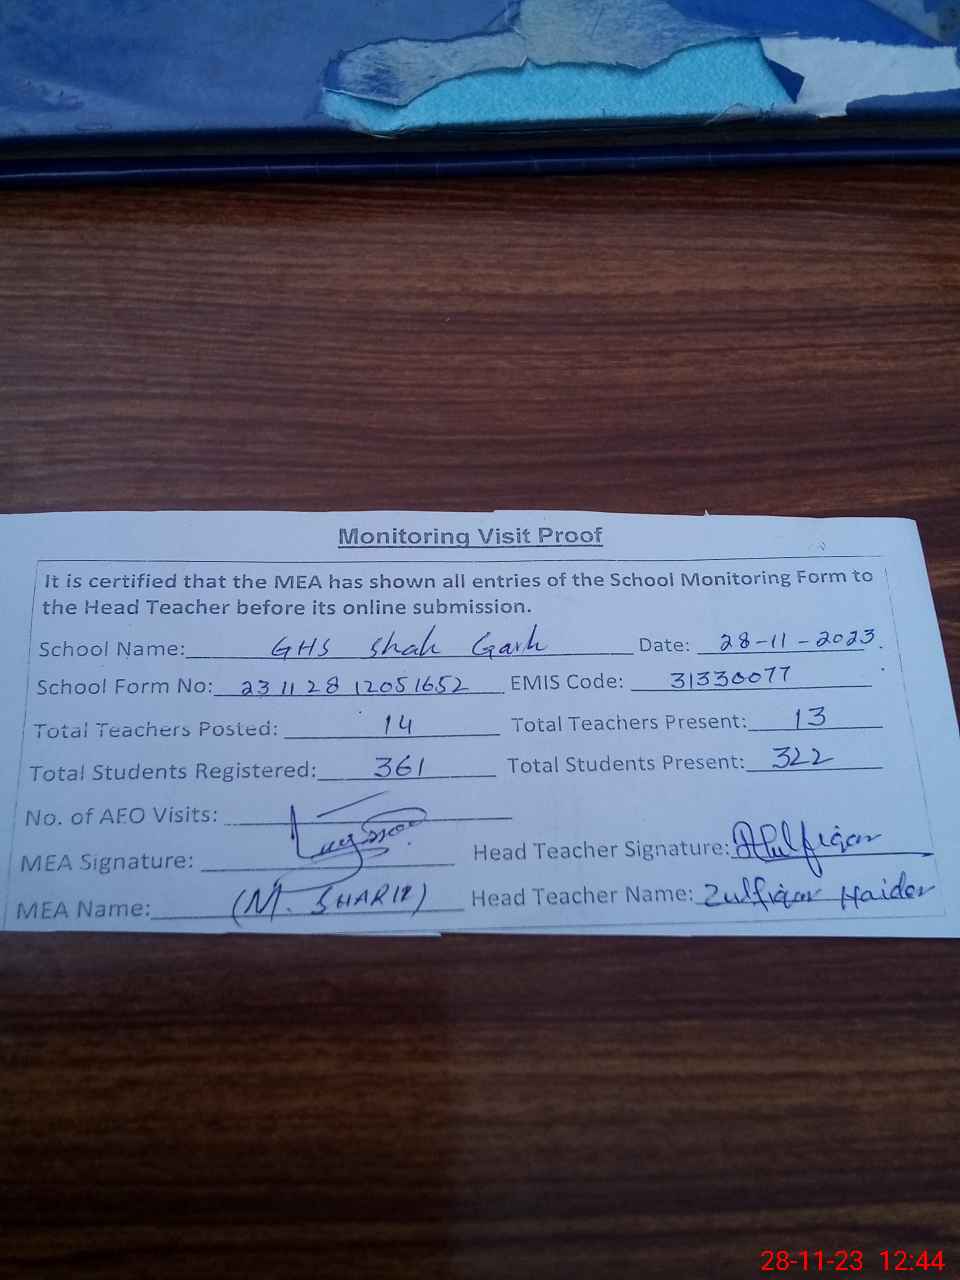 Monitoring Visit Proof
It is certified that the MEA has shown all entries of the School Monitoring Form to
the Head Teacher before its online submission.
School Name: GHS Shah Garh Date: 28-11-2023.
School Form No: 23112812051652 EMIS Code: 31330077
Total Teachers Posted: 14 Total Teachers Present: 13
Total Students Registered: 361 Total Students Present: 322
No. of AEO Visits:
MEA Signature: Head Teacher Signature: Zulfiqar
MEA Name: (M. SHARIF) Head Teacher Name: Zulfiqar Haider
28-11-23 12:44